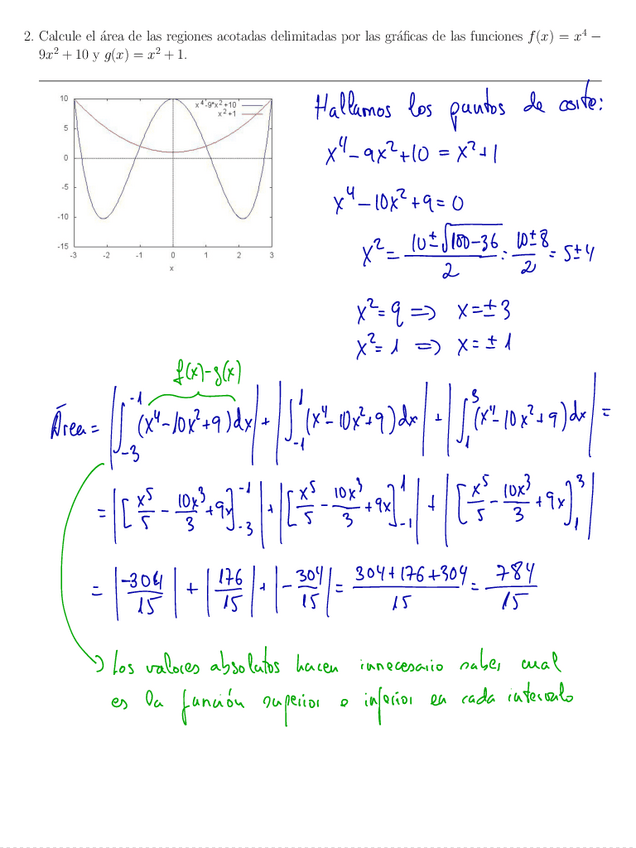 2. Calcule el área de las regiones acotadas delimitadas por las gráficas de las funciones f(x) = x⁴ −
9x² + 10 y g(x) = x² + 1.
x^4-9*x^2+10
x^2+1
10
5
0
-5
-10
-15
-3 -2 -1 0 1 2 3
x
Hallamos los puntos de corte:
x⁴-9x²+10 = x²+1
x⁴-10x²+9=0
x² = (10±√(100-36))/2 = (10±8)/2 = 5±4
x²=9 => x=±3
x²=1 => x=±1
f(x)-g(x)
Área = |∫_{-3}^{-1} (x⁴-10x²+9)dx| + |∫_{-1}^{1} (x⁴-10x²+9)dx| + |∫_{1}^{3} (x⁴-10x²+9)dx| =
= |[x⁵/5 - 10x³/3 + 9x]_{-3}^{-1}| + |[x⁵/5 - 10x³/3 + 9x]_{-1}^{1}| + |[x⁵/5 - 10x³/3 + 9x]_{1}^{3}|
= |-304/15| + |176/15| + |-304/15| = (304+176+304)/15 = 784/15
Los valores absolutos hacen innecesario saber cual
es la función superior o inferior en cada intervalo